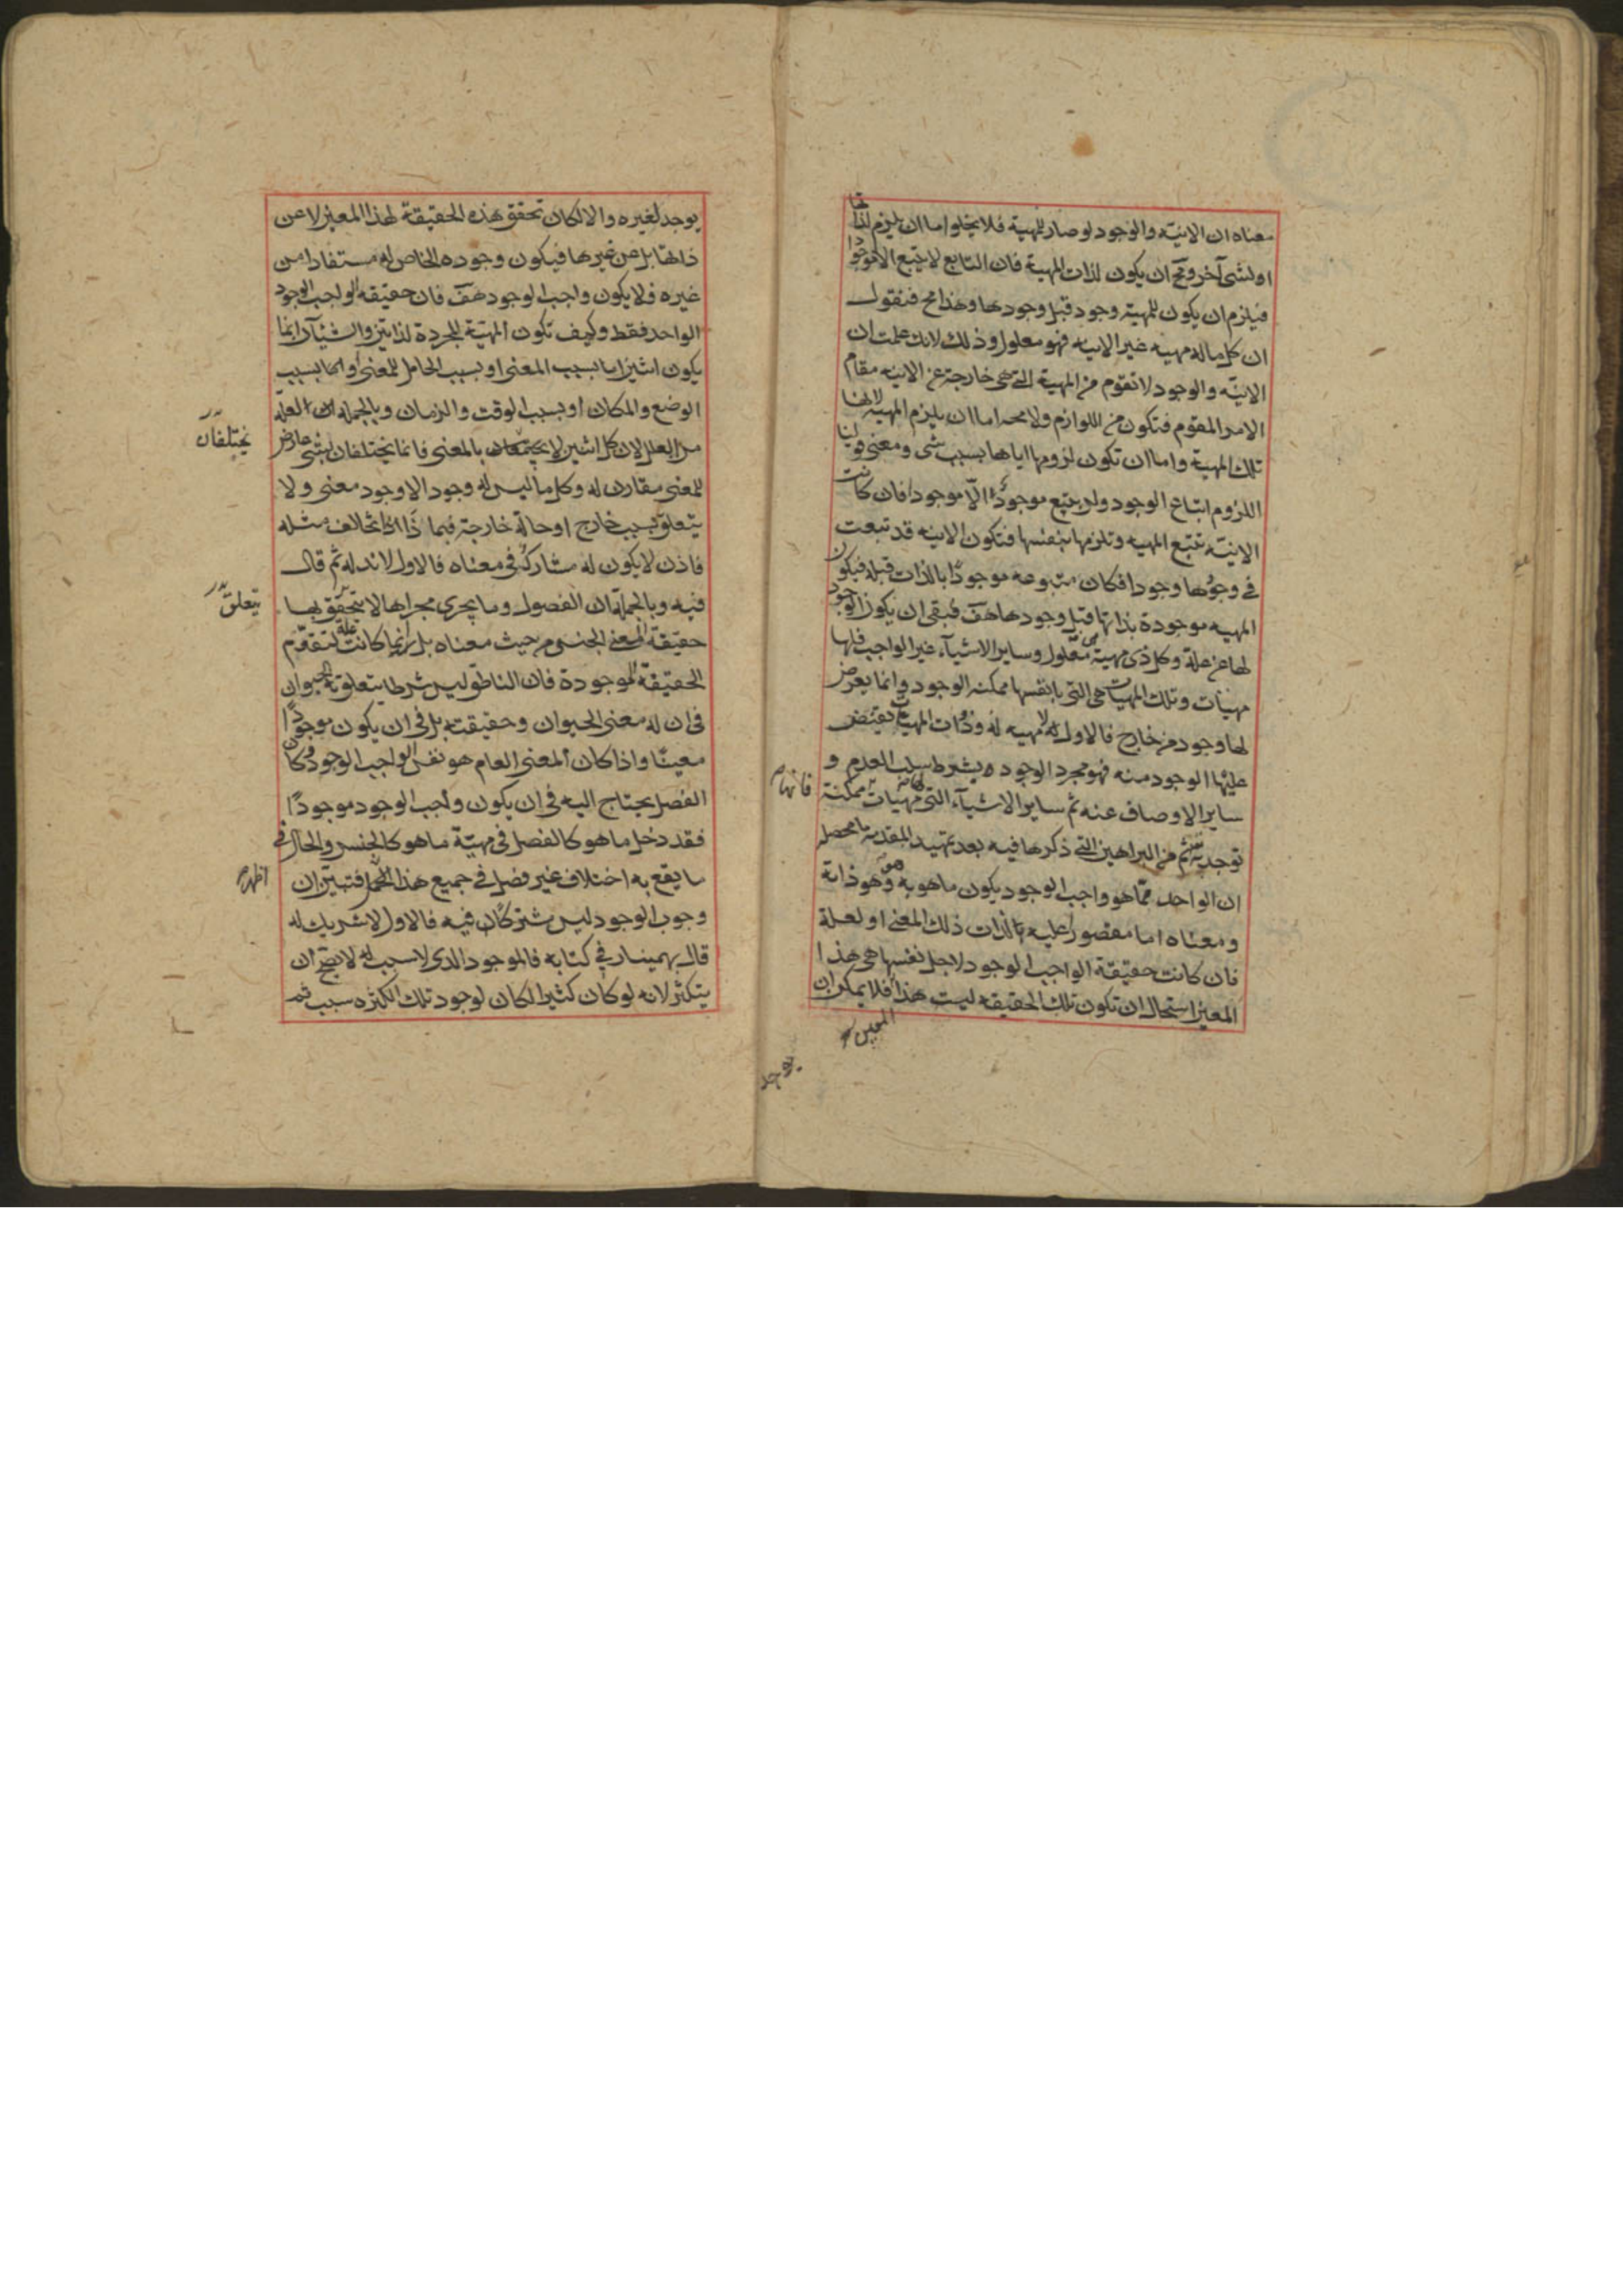 معناه ان الانيّه والوجود لوصار للمهية فلا يخلو اما ان يلزم لذاتها
او لشی آخر ومح ان يكون لذات المهية فان التابع لا يتبع الا موجودا
فيلزم ان يكون للمهية وجود قبل وجودها وهذا مح فنقول
ان كل ماله مهيه غير الانيه فهو معلول وذلك لانك علمت ان
الانيّه والوجود لا تقوم من المهية التی هی خارجة عن الانيه مقام
الامر المقوم فتكون من اللوازم ولا محه اما ان يلزم المهيه لانها
تلك المهية واما ان تكون لزومها اياها بسبب شی ومعنی قولنا
اللزوم اتباع الوجود ولن يتبع موجودٌ الّا موجودا فان كانت
الانيّه تتبع المهيه وتلزمها بنفسها فتكون الانيه قد تبعت
فی وجودها وجودا فكان متبوعه موجودًا بالذات قبله فيكون
المهيه موجودة بذاتها قبل وجودها هف فبقی ان يكون الوجود
لها عن علة وكل ذی مهية معلول وساير الاشيآء غير الواجب فلها
مهيات وتلك المهيات هی التی بانفسها ممكنه الوجود وانما يعرض
لها وجود من خارج فالاول لا مهيه له وذوات المهيات يفيض
عليها الوجود منه فهو مجرد الوجود بشرط سلب العدم و
ساير الاوصاف عنه ثم ساير الاشيآء التی لها مهيات ممكنة
فانها
توجد به ثم من البراهين التی ذكرها فيه بعد تمهيد المقدمة ما محصل
ان الواحد مما هو واجب الوجود يكون ما هو به هو وهو ذاته
ومعناه اما مقصورًا عليه لذات ذلك المعنی او لعلة
فان كانت حقيقة الواجب الوجود لاجل نفسها هی هذا
المعين استحال ان تكون تلك الحقيقه ليست هذا فلا يمكن ان
المعين
يوجد
يوجد لغيره والا لكان تحقق هذه الحقيقة لهذا المعين لا عن
ذاتها بل عن غيرها فيكون وجوده الخاص له مستفادا من
غيره فلا يكون واجب الوجود هف فان حقيقه الواجب الوجود
الواحد فقط وكيف تكون المهية المجردة لذاتين والشيئآن انما
يكون اثنين اما بسبب المعنی او بسبب الحامل للمعنی واما بسبب
الوضع والمكان او بسبب الوقت والزمان وبالجمله العلة
من العلل لان كل اثنين لا يختلفان بالمعنی فانما يختلفان بشی عارض
يختلفان
للمعنی مقارن له وكل ما ليس له وجود الا وجود معنی ولا
يتعلق بسبب خارج او حالة خارجة فبما ذا يخالف مثله
فاذن لا يكون له مشارك فی معناه فالاول لا ند له ثم قال
فيه وبالجملة ان الفصول وما يجری مجراها لا يتحقق بها
يتعلق
حقيقة المعنی الجنسی من حيث معناه بل انما كانت علة لتقوم
الحقيقة موجودة فان الناطق ليس شرطا يتعلق به الحيوان
فی ان له معنی الحيوان وحقيقته بل فی ان يكون موجودًا
معينًا واذا كان المعنی العام هو نفس الواجب الوجود وكان
الفصل يحتاج اليه فی ان يكون واجب الوجود موجودًا
فقد دخل ما هو كالفصل فی مهيّة ما هو كالجنس والحال فی
ما يقع به اختلاف غير فصلی فی جميع هذا اظهر فتبين ان
اظهر
وجوب الوجود ليس مشتركًا فيه فالاول لا شريك له
قال بهمنيار فی كتابه فالموجود الذی لا سبب له لا يصح ان
يتكثر لانه لو كان كثيرا لكان لوجود تلك الكثره سبب ثم